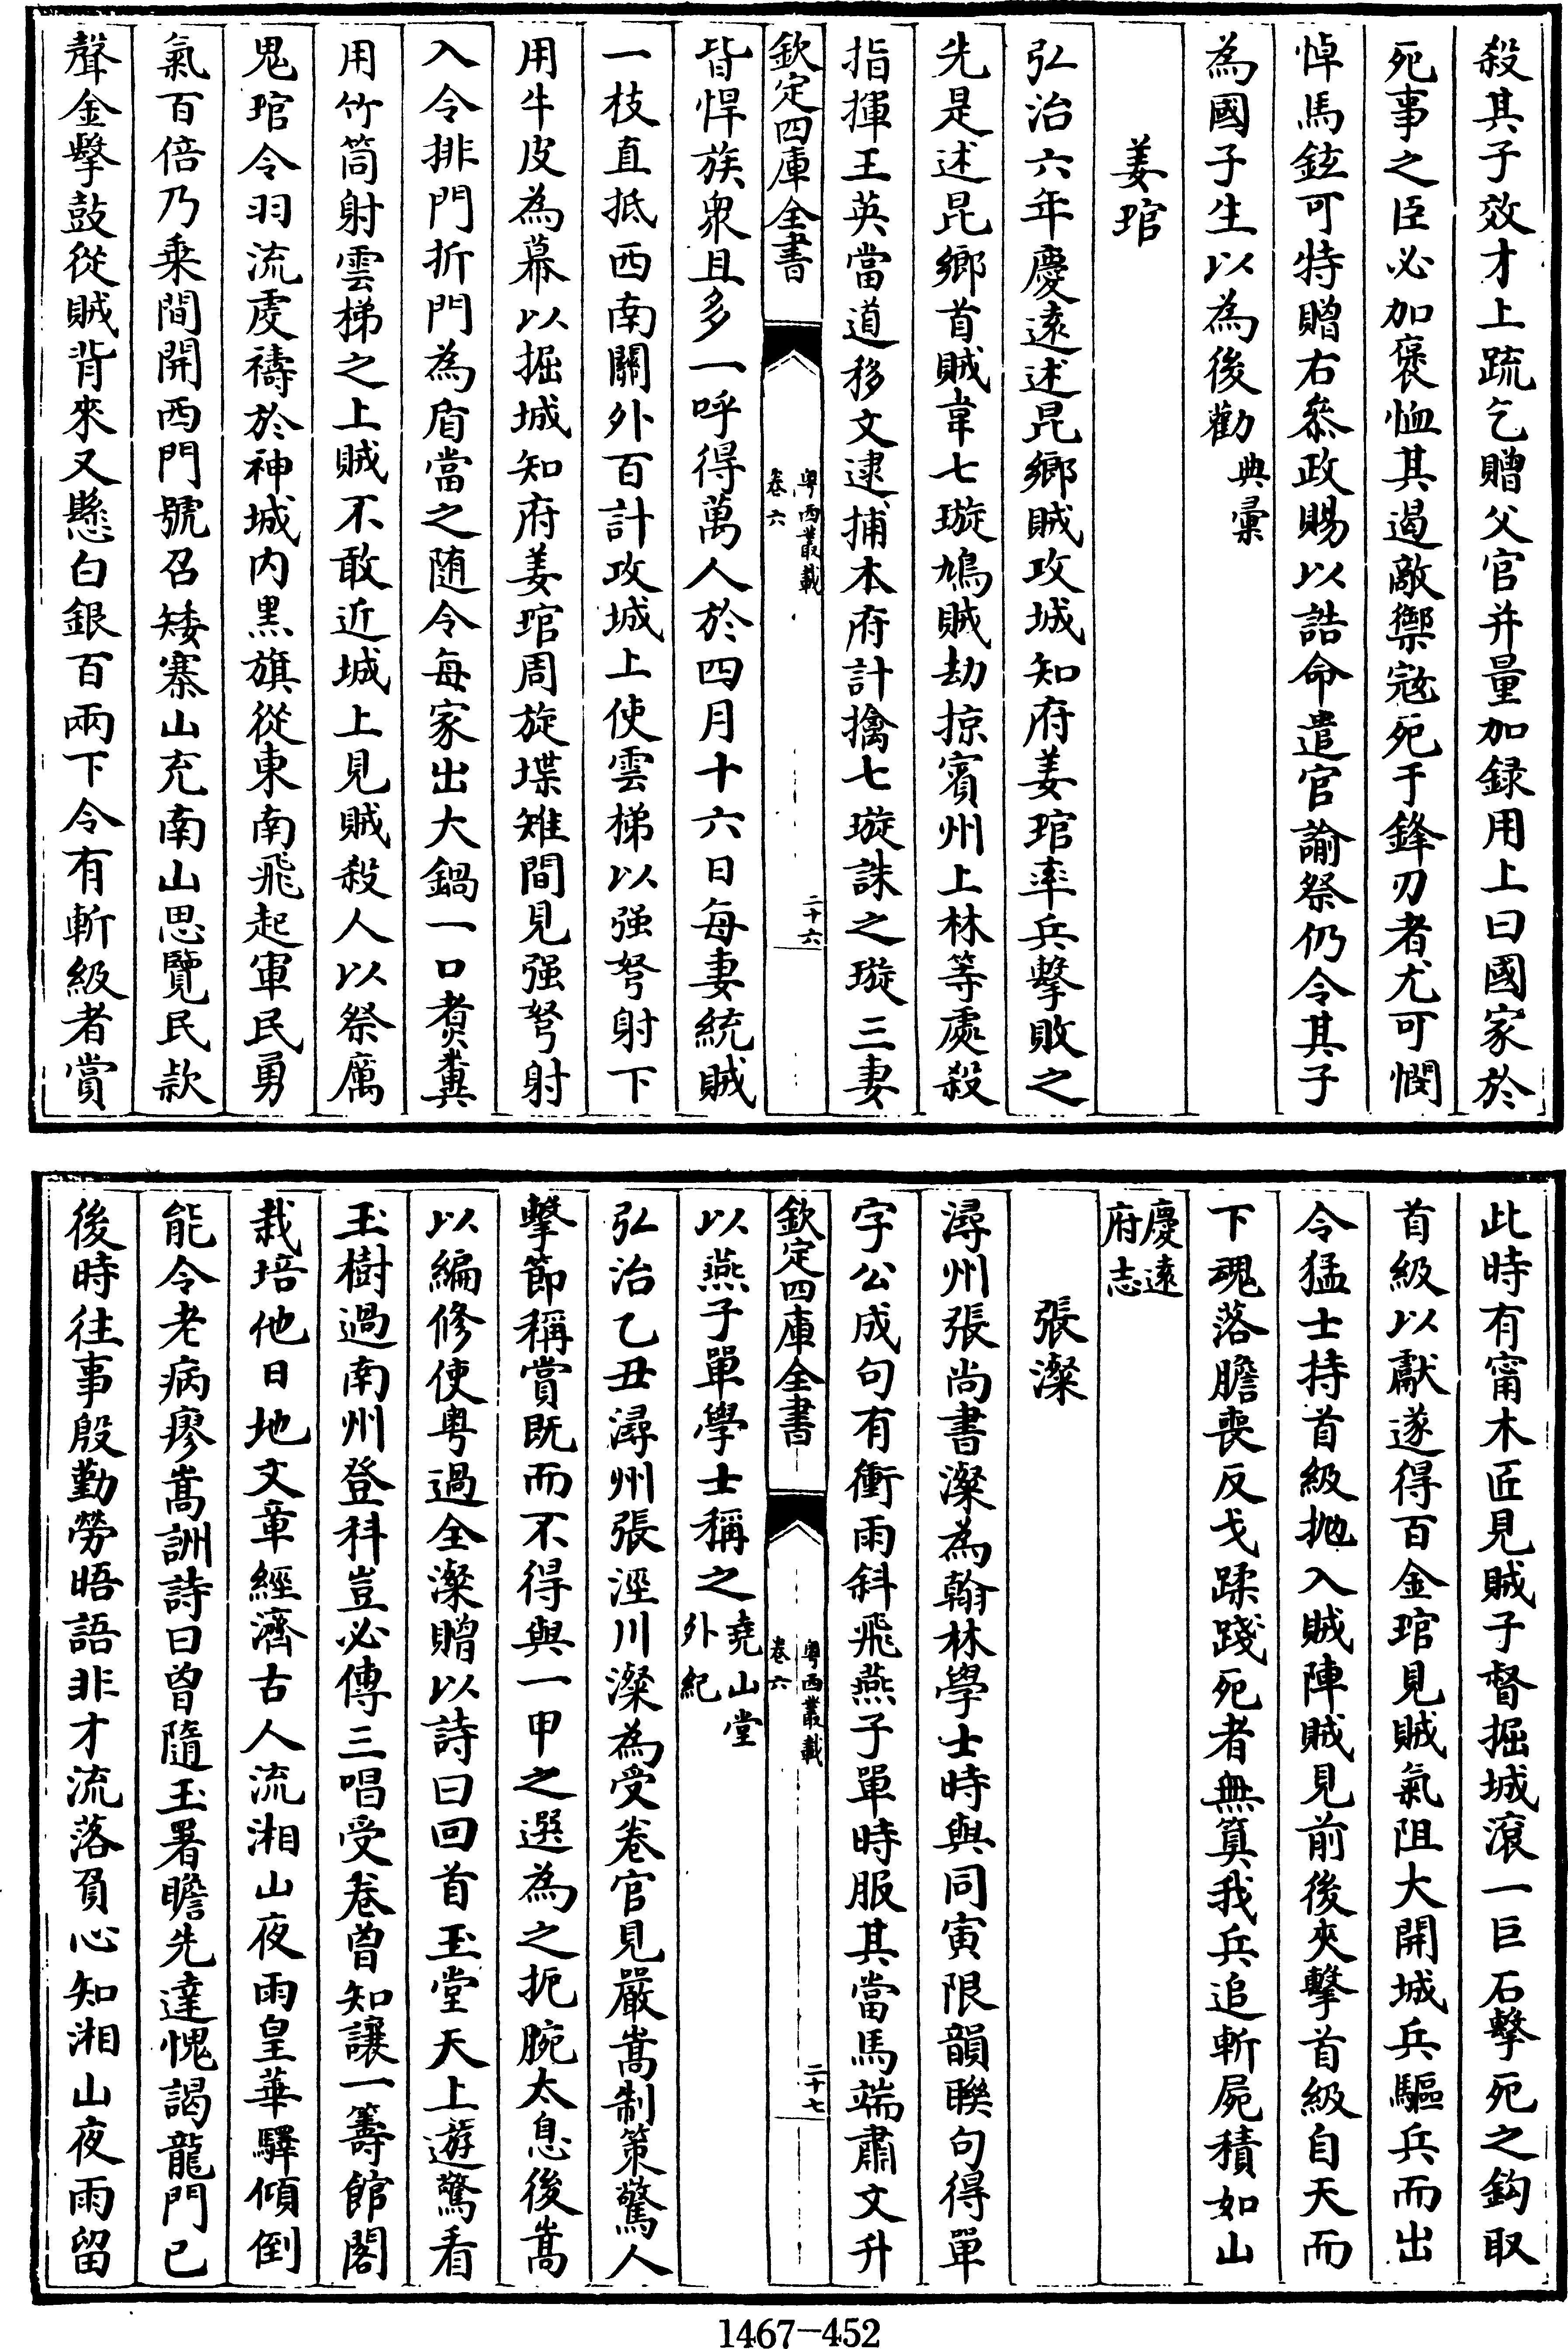 殺其子效才上疏乞贈父官并量加録用上曰國家於
死事之臣必加褒恤其遏敵禦寇死于鋒刃者尤可憫
悼馬鉉可特贈右叅政賜以誥命遣官諭祭仍令其子
為國子生以為後勸典彙
姜琯
弘治六年慶逺述昆鄉賊攻城知府姜琯率兵擊敗之
先是述昆鄉首賊韋七璇鳩賊劫掠賓州上林等處殺
指揮王英當道移文逮捕本府計擒七璇誅之璇三妻
欽定四庫全書
粤西叢載
卷六
二十六
皆悍族衆且多一呼得萬人於四月十六日每妻統賊
一枝直抵西南關外百計攻城上使雲梯以强弩射下
用牛皮為幕以掘城知府姜琯周旋堞雉間見强弩射
入令排門折門為盾當之随令每家出大鍋一口煑糞
用竹筒射雲梯之上賊不敢近城上見賊殺人以祭厲
鬼琯令羽流䖍禱於神城内黒旗從東南飛起軍民勇
氣百倍乃乗間開西門號召矮寨山充南山思覽民款
聲金擊鼓從賊背來又懸白銀百兩下令有斬級者賞
此時有甯木匠見賊子督掘城滾一巨石擊死之鈎取
首級以獻遂得百金琯見賊氣阻大開城兵驅兵而出
令猛士持首級抛入賊陣賊見前後夾擊首級自天而
下魂落膽喪反戈蹂踐死者無算我兵追斬屍積如山
慶逺
府志
張濴
潯州張尚書濴為翰林學士時與同寅限韻聨句得單
字公成句有衝雨斜飛燕子單時服其當馬端肅文升
欽定四庫全書
粤西叢載
卷六
二十七
以燕子單學士稱之堯山堂
外紀
弘治乙丑潯州張涇川濴為受卷官見嚴嵩制策驚人
擊節稱賞既而不得與一甲之選為之扼腕太息後嵩
以編修使粤過全濴贈以詩曰回首玉堂天上遊驚看
玉樹過南州登科豈必傳三唱受卷曾知讓一籌館閣
栽培他日地文章經濟古人流湘山夜雨皇華驛傾倒
能令老病瘳嵩訓詩曰曾隨玉署瞻先達愧謁龍門已
後時往事殷勤勞晤語非才流落負心知湘山夜雨留
1467-452